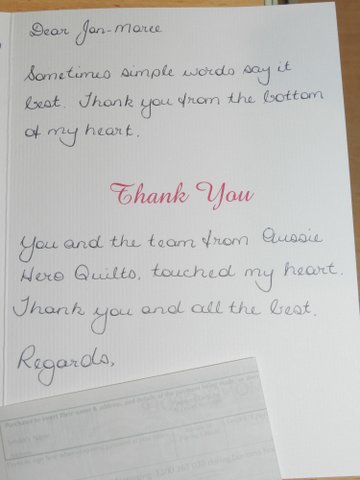 Dear Jan-Maree
Sometimes simple words say it
best. Thank you from the bottom
of my heart.
Thank You
You and the team from Aussie
Hero Quilts, touched my heart.
Thank you and all the best.
Regards,